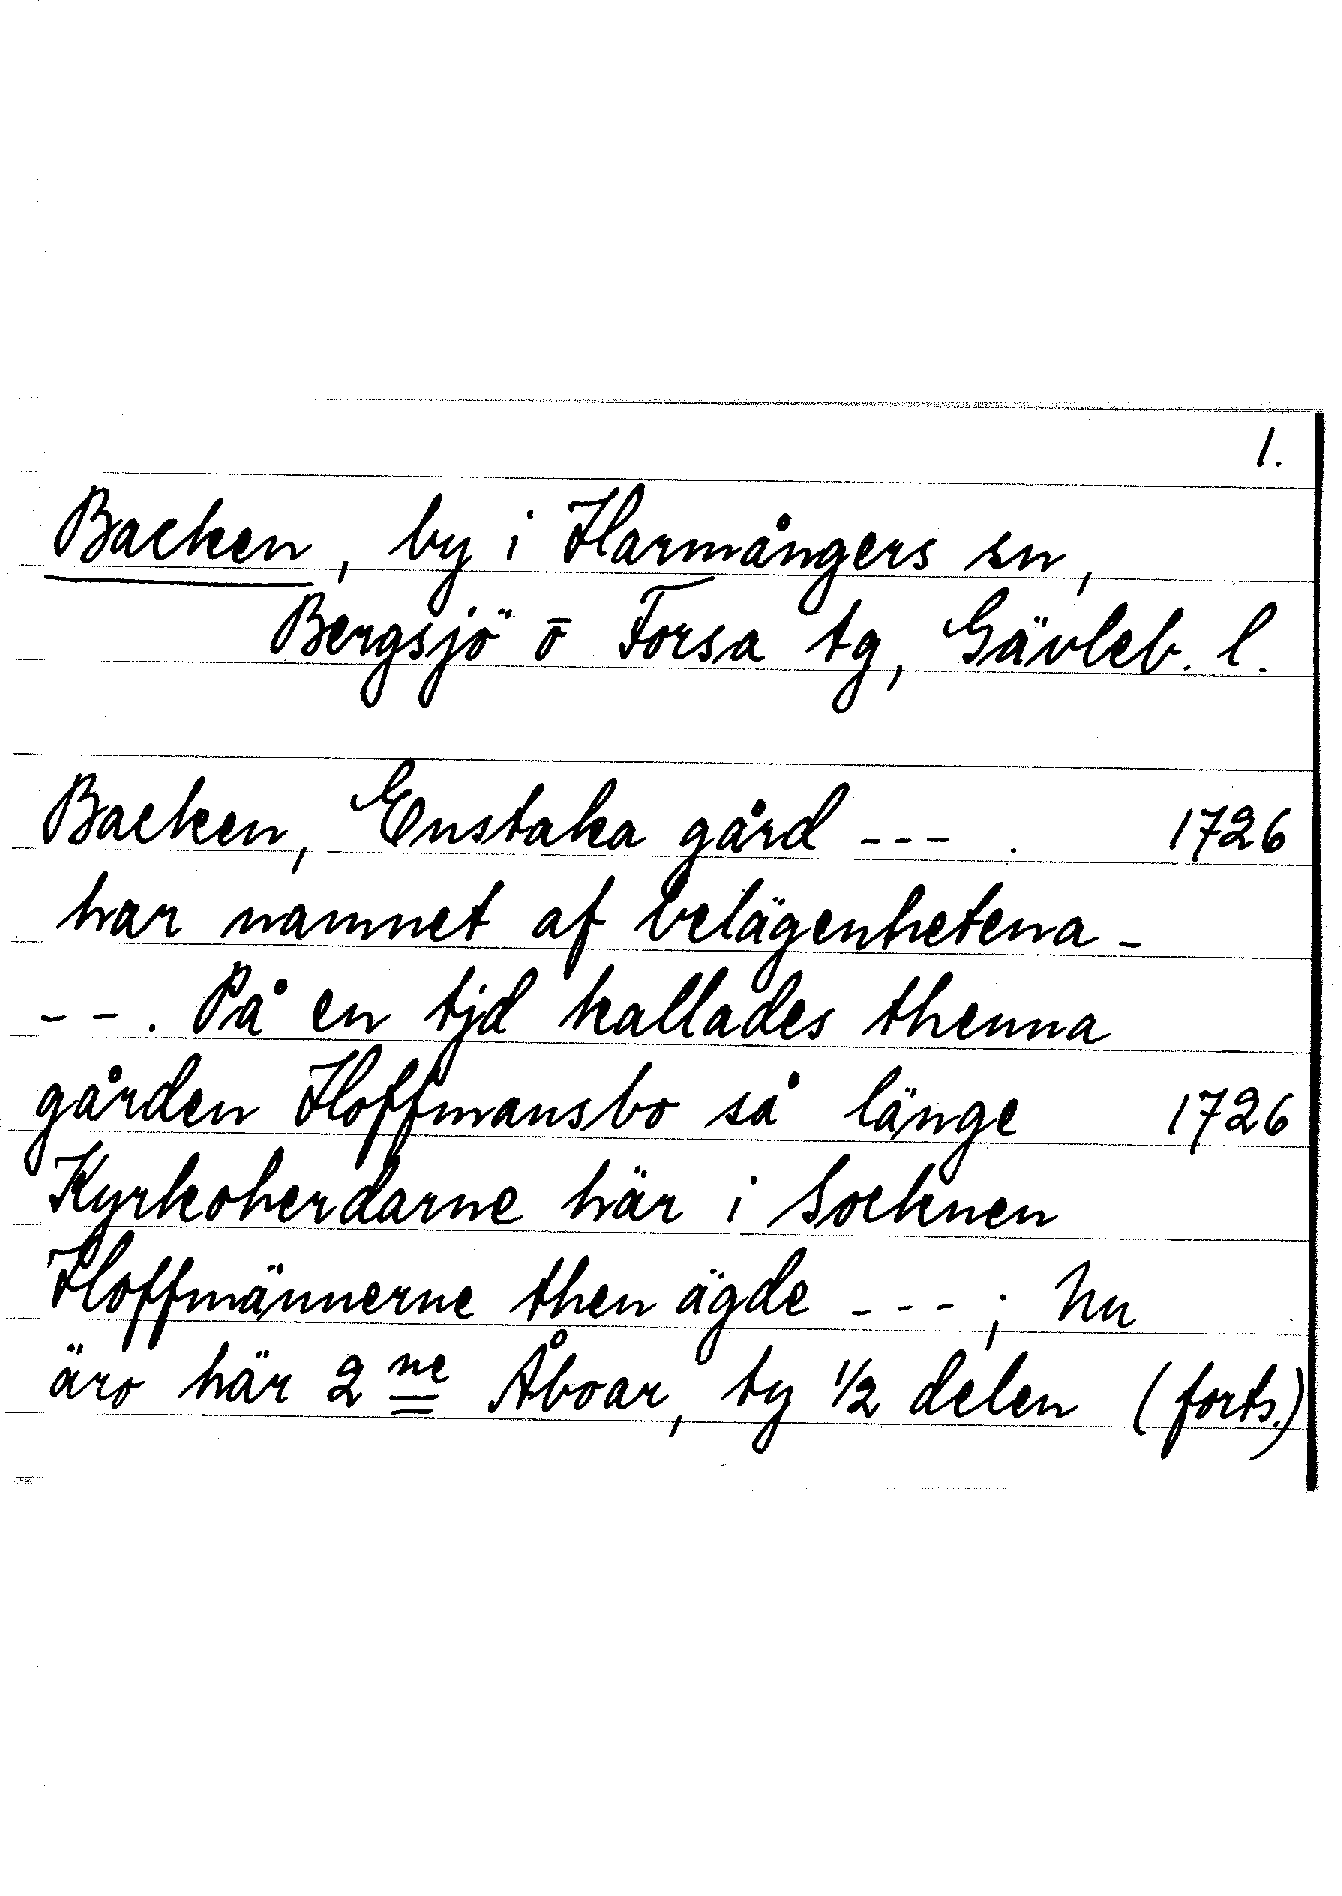 1.
Backen, by i Harmångers sn,
Bergsjö o Forsa tg, Gävleb. l.
Backen, Enstaka gård --- . 1726
har namnet af belägenhetena -
-- . På en tjd kallades thenna
gården Hoffmansbo så länge 1726
Kyrkoherdarne här i Socknen
Hoffmännerne then ägde --- ; Nu
äro här 2 ne Åboar, ty 1/2 delen (forts.)